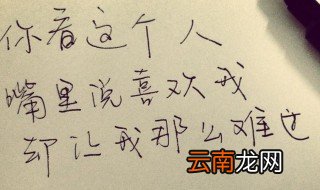 你看这个人
嘴里说喜欢我
却让我那么难过
云南龙网